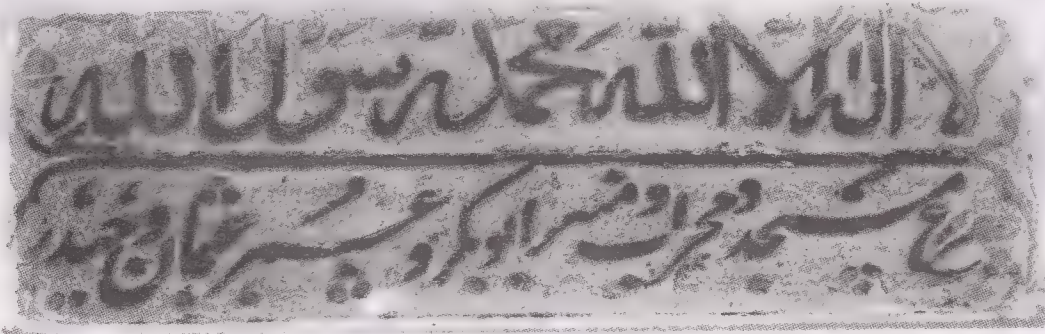 لا اله الا الله محمد رسول الله
چراغ مسجد محراب و منبر ابوبکر و عمر عثمان و حیدر